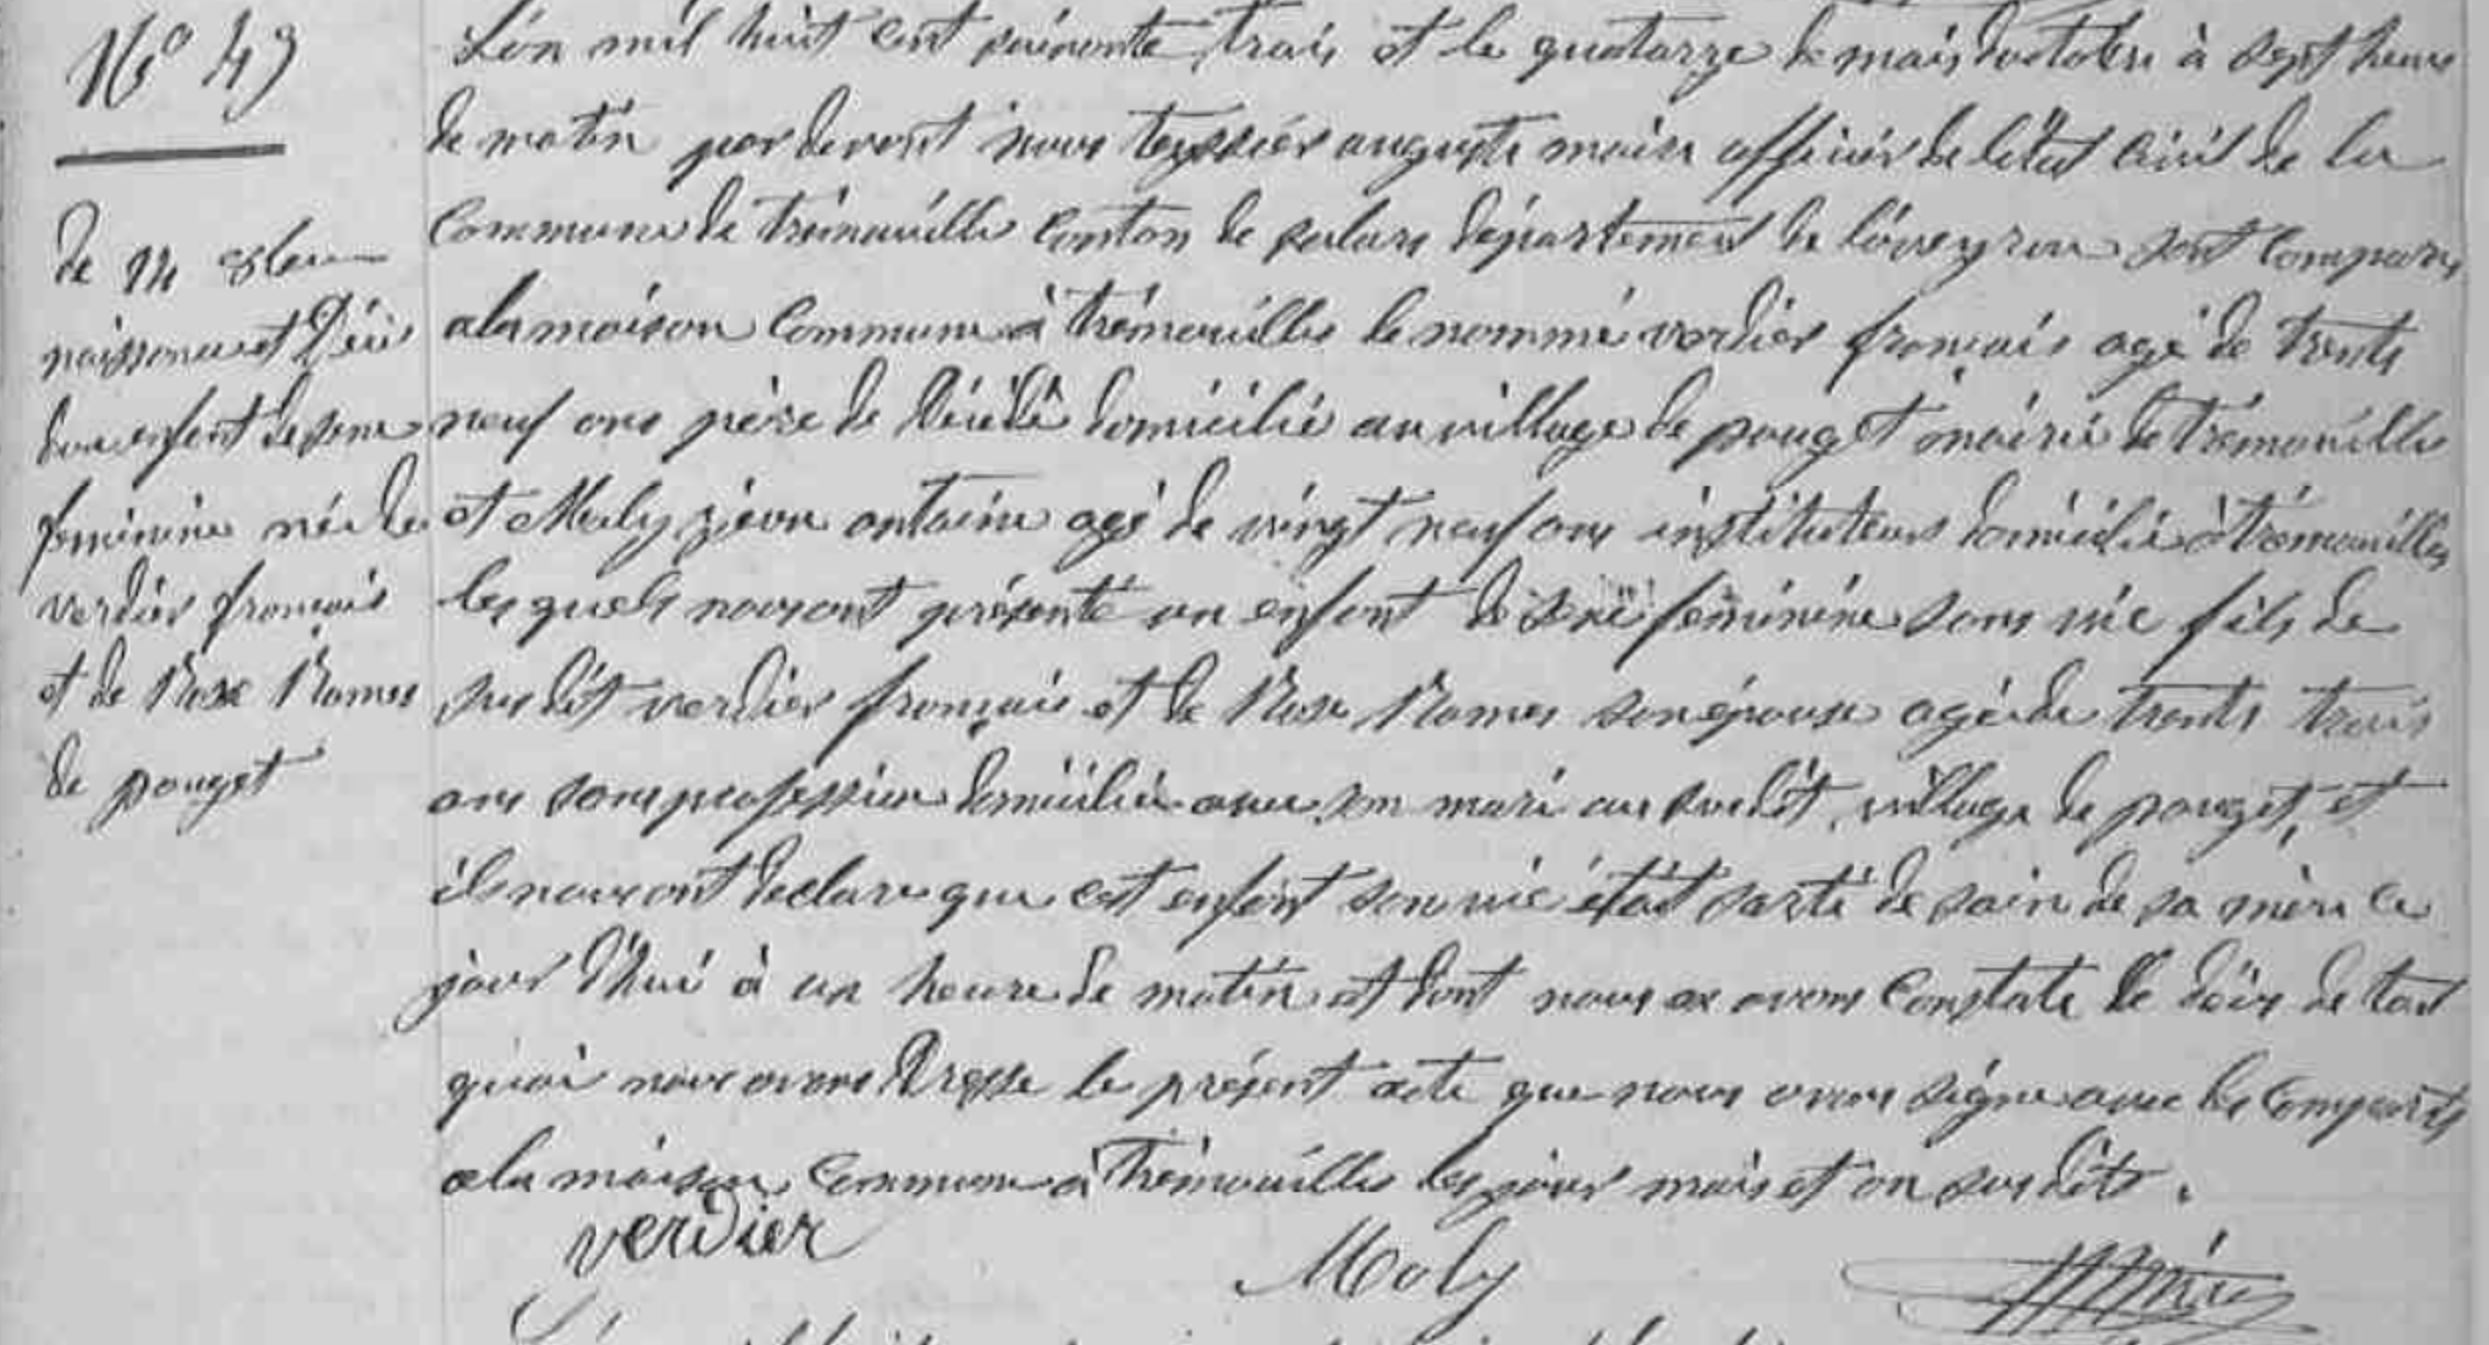 N° 49
de 14 8bre
naissance et décès
d'un enfant de sexe
féminine née de
verdier françois
et de Rose Rames
de pouget
L'an mil huit cent soixante trois et le quatorze de mois d'octobre à sept heure
de matin par devant nous teyssier auguste maire officier de l'état civil de la
Commune de trémouilles Canton de salars département de l'aveyron sont comparus
a la maison Commune à trémouilles le nommé verdier françois agé de trente
neuf ans père de décédé domicilié au village de pouget mairie de trémouilles
et Moly jean antoine agé de vingt neuf ans instituteur domicilié à trémouilles
les quels nous ont présenté un enfant de sexe féminine sans vie fils de
sus dit verdier françois et de Rose Rames son épouse agée de trente trois
ans sans profession domiciliée avec son mari au susdit village de pouget, et
ils nous ont declare que cet enfant san vie était sorti de sein de sa mère ce
jour d'hui à un heure de matin et dont nous en avons Constate le décès de tout
quoi nous avons Dresse le présent acte que nous avons signe avec les comparants
a la maison Commune à Trémouilles les jour mois et an sus dits.
verdier
Moly